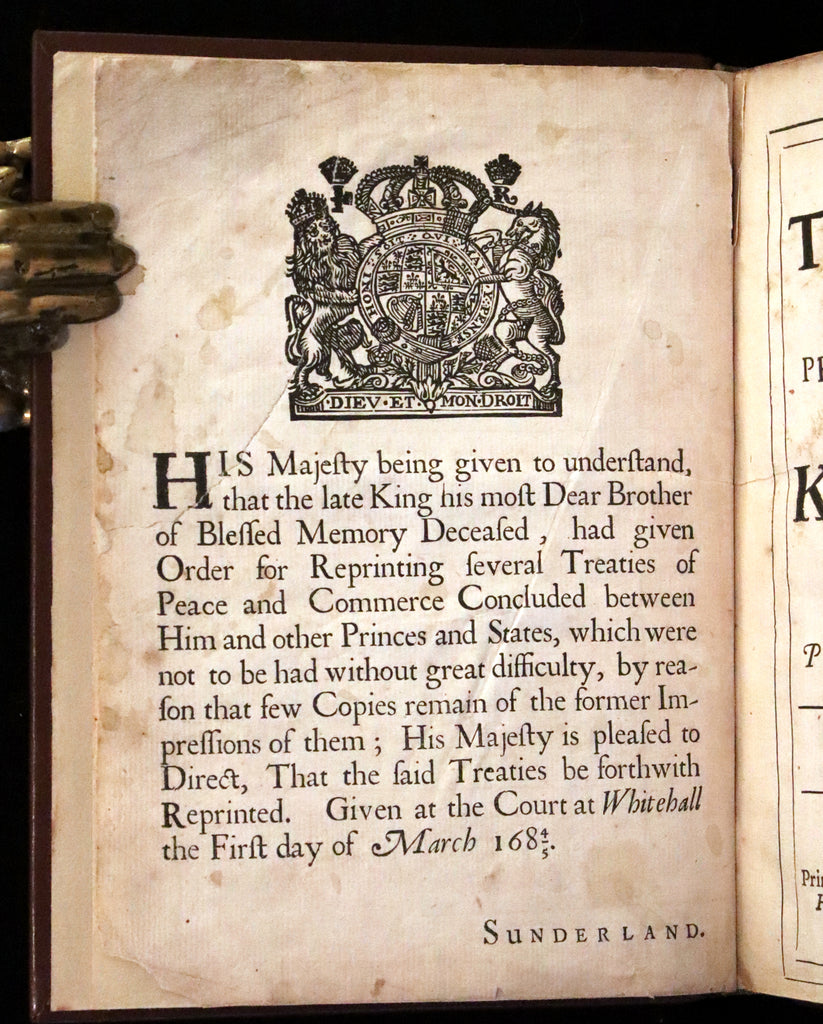 I R
HONI·SOIT·QVI·MAL·Y·PENSE
·DIEV·ET· MON·DROIT
HIS Majeſty being given to underſtand,
that the late King his moſt Dear Brother
of Bleſſed Memory Deceaſed , had given
Order for Reprinting ſeveral Treaties of
Peace and Commerce Concluded between
Him and other Princes and States, which were
not to be had without great difficulty, by rea-
ſon that few Copies remain of the former Im-
preſſions of them ; His Majeſty is pleaſed to
Direct, That the ſaid Treaties be forthwith
Reprinted. Given at the Court at Whitehall
the Firſt day of March 168⅘.
SUNDERLAND.
T
K
P